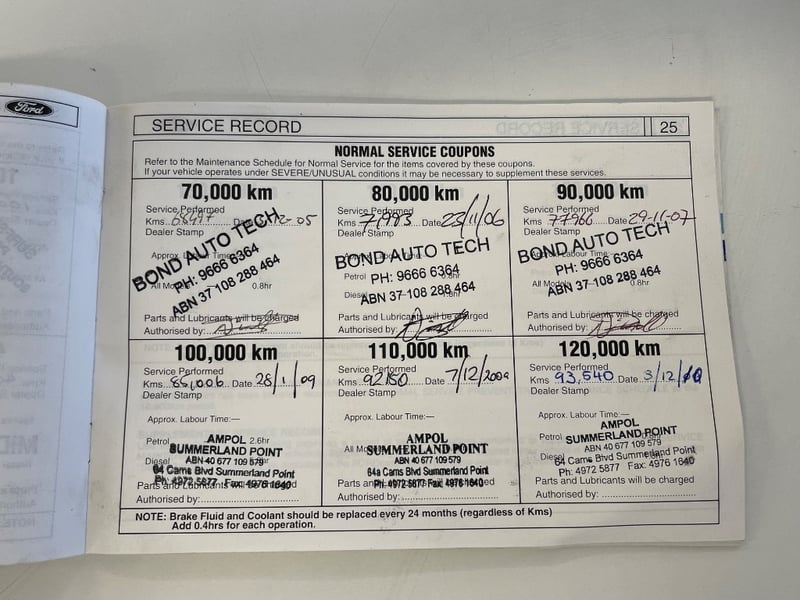 Ford
SERVICE RECORD
25
NORMAL SERVICE COUPONS
Refer to the Maintenance Schedule for Normal Service for the items covered by these coupons.
If your vehicle operates under SEVERE/UNUSUAL conditions it may be necessary to supplement these services.
70,000 km
Service Performed
Kms. Date 12-05
Dealer Stamp
BOND AUTO TECH
Approx. Labour Time:
PH: 9666 6364
All Models 0.8hr
ABN 37 108 288 464
Parts and Lubricants will be charged
Authorised by:
80,000 km
Service Performed
Kms 71,993 Date 23/11/06
Dealer Stamp
BOND AUTO TECH
Petrol
PH: 9666 6364
Diesel
ABN 37 108 288 464
Parts and Lubricants will be charged
Authorised by:
90,000 km
Service Performed
Kms 77966 Date 29-11-07
Dealer Stamp
BOND AUTO TECH
PH: 9666 6364
All Models 0.8hr
ABN 37 108 288 464
Parts and Lubricants will be charged
Authorised by:
100,000 km
Service Performed
Kms 85,006 Date 28/1/09
Dealer Stamp
Approx. Labour Time:—
Petrol 2.6hr
AMPOL
SUMMERLAND POINT
Diesel
ABN 40 677 109 579
64 Cams Blvd Summerland Point
Ph: 4972 5877 Fax: 4976 1640
Parts and Lubricants will be charged
Authorised by:
110,000 km
Service Performed
Kms 92150 Date 7/12/2009
Dealer Stamp
Approx. Labour Time:—
AMPOL
All Models
SUMMERLAND POINT
ABN 40 677 109 579
64a Cams Blvd Summerland Point
Ph: 4972 5877 Fax: 4976 1640
Parts and Lubricants will be charged
Authorised by:
120,000 km
Service Performed
Kms 93,540 Date 3/12/10
Dealer Stamp
Approx. Labour Time:—
AMPOL
Petrol
SUMMERLAND POINT
ABN 40 677 109 579
Diesel
64 Cams Blvd Summerland Point
Ph: 4972 5877 Fax: 4976 1640
Parts and Lubricants will be charged
Authorised by:
NOTE: Brake Fluid and Coolant should be replaced every 24 months (regardless of Kms)
Add 0.4hrs for each operation.